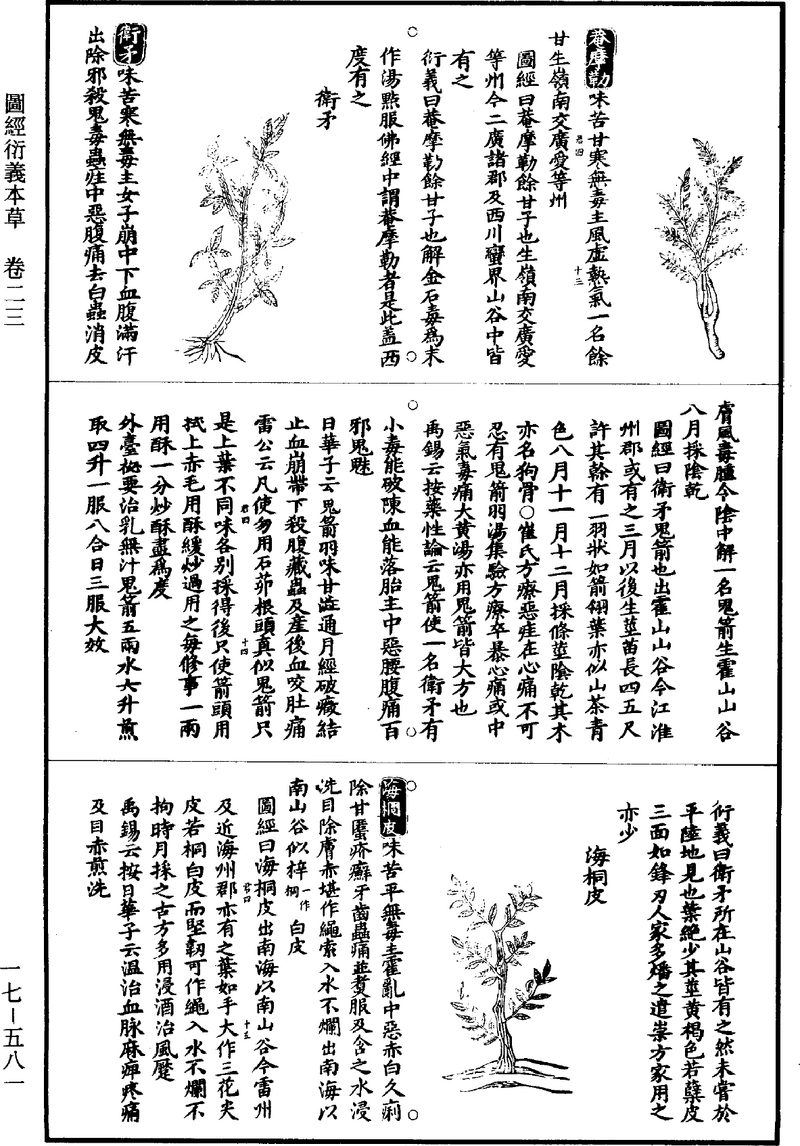 圖經衍義本草　卷二三
一七－五八一
菴摩勒味苦甘寒無毒主風虛熱氣一名餘
甘生嶺南交廣愛等州
圖經曰菴摩勒餘甘子也生嶺南交廣愛
等州今二廣諸郡及西川蠻界山谷中皆
有之
衍義曰菴摩勒餘甘子也解金石毒為末
作湯點服佛經中謂菴摩勒者是此蓋西
度有之
衛矛
衛矛味苦寒無毒主女子崩中下血腹滿汗
出除邪殺鬼毒蟲疰中惡腹痛去白蟲消皮
膚風毒腫令陰中解一名鬼箭生霍山山谷
八月採陰乾
圖經曰衛矛鬼箭也出霍山山谷今江淮
州郡或有之三月以後生莖苗長四五尺
許其幹有一羽狀如箭翎葉亦似山茶青
色八月十一月十二月採條莖陰乾其木
亦名狗骨○崔氏方療惡疰在心痛不可
忍有鬼箭羽湯集驗方療卒暴心痛或中
惡氣毒痛大黃湯亦用鬼箭皆大方也
禹錫云按藥性論云鬼箭使一名衛矛有
小毒能破陳血能落胎主中惡腰腹痛百
邪鬼魅
日華子云鬼箭羽味甘澁通月經破癥結
止血崩帶下殺腹藏蟲及產後血咬肚痛
雷公云凡使勿用石茆根頭真似鬼箭只
是上葉不同味各別採得後只使箭頭用
拭上赤毛用酥緩炒過用之每修事一兩
用酥一分炒酥盡為度
外臺祕要治乳無汁鬼箭五兩水六升煎
取四升一服八合日三服大效
衍義曰衛矛所在山谷皆有之然未嘗於
平陸地見也葉絕少其莖黃褐色若蘗皮
三面如鋒刃人家多燔之遣祟方家用之
亦少
海桐皮
海桐皮味苦平無毒主霍亂中惡赤白久痢
除甘䘌疥癬牙齒蟲痛並煑服及含之水浸
洗目除膚赤堪作繩索入水不爛出南海以
南山谷似梓桐一作白皮
圖經曰海桐皮出南海以南山谷今雷州
及近海州郡亦有之葉如手大作三花尖
皮若桐白皮而堅韌可作繩入水不爛不
拘時月採之古方多用浸酒治風蹷
禹錫云按日華子云溫治血脉麻痺疼痛
及目赤煎洗